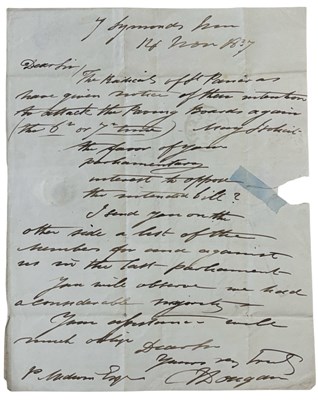 7 Symonds Inn
14 Nov 1837
Dear Sir
The Radicals of St Pancras
have given notice of their intention
to attack the Paving Boards again
(the 6th or 7th time) May I solicit
the favor of your
parliamentary
interest to oppose
the intended bill?
I send you on the
other side a list of the
Members for and against
us in the last parliament
You will observe we had
a considerable majority
Your assistance will
much oblige
Dear Sir
Yours very truly
Esqr